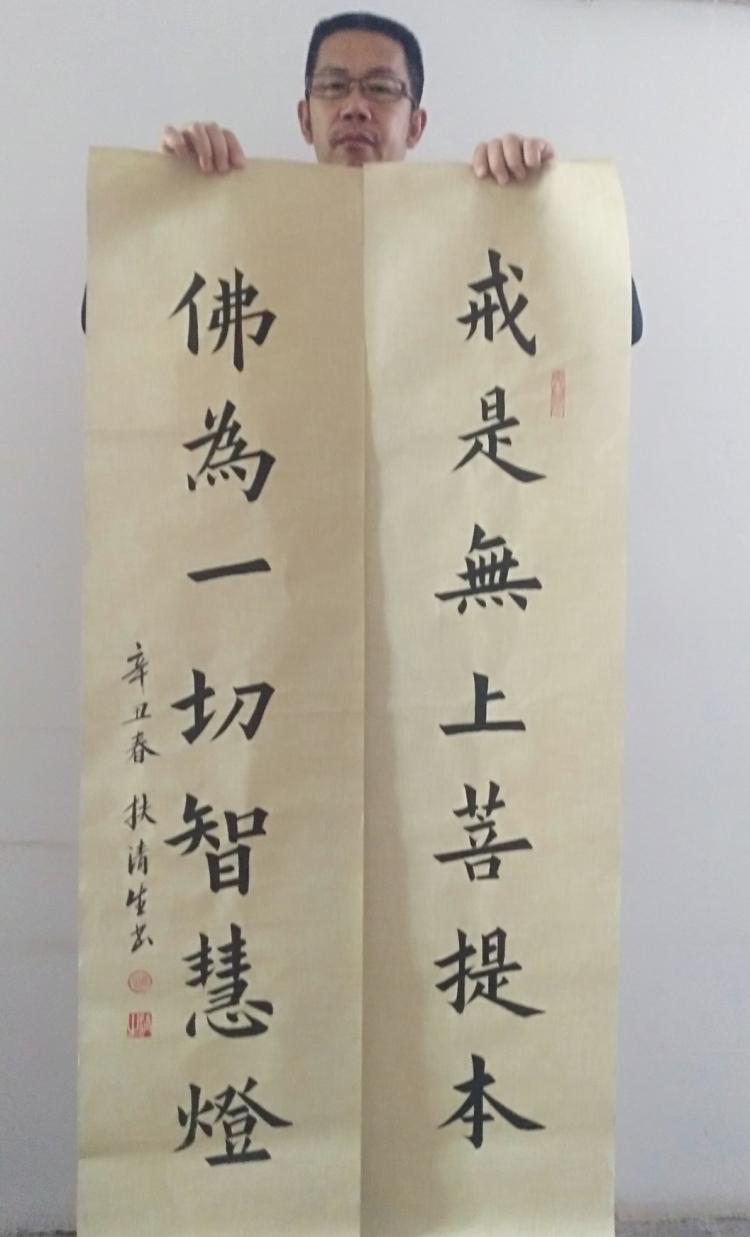 戒是無上菩提本
佛為一切智慧燈
辛丑春 扶清生书